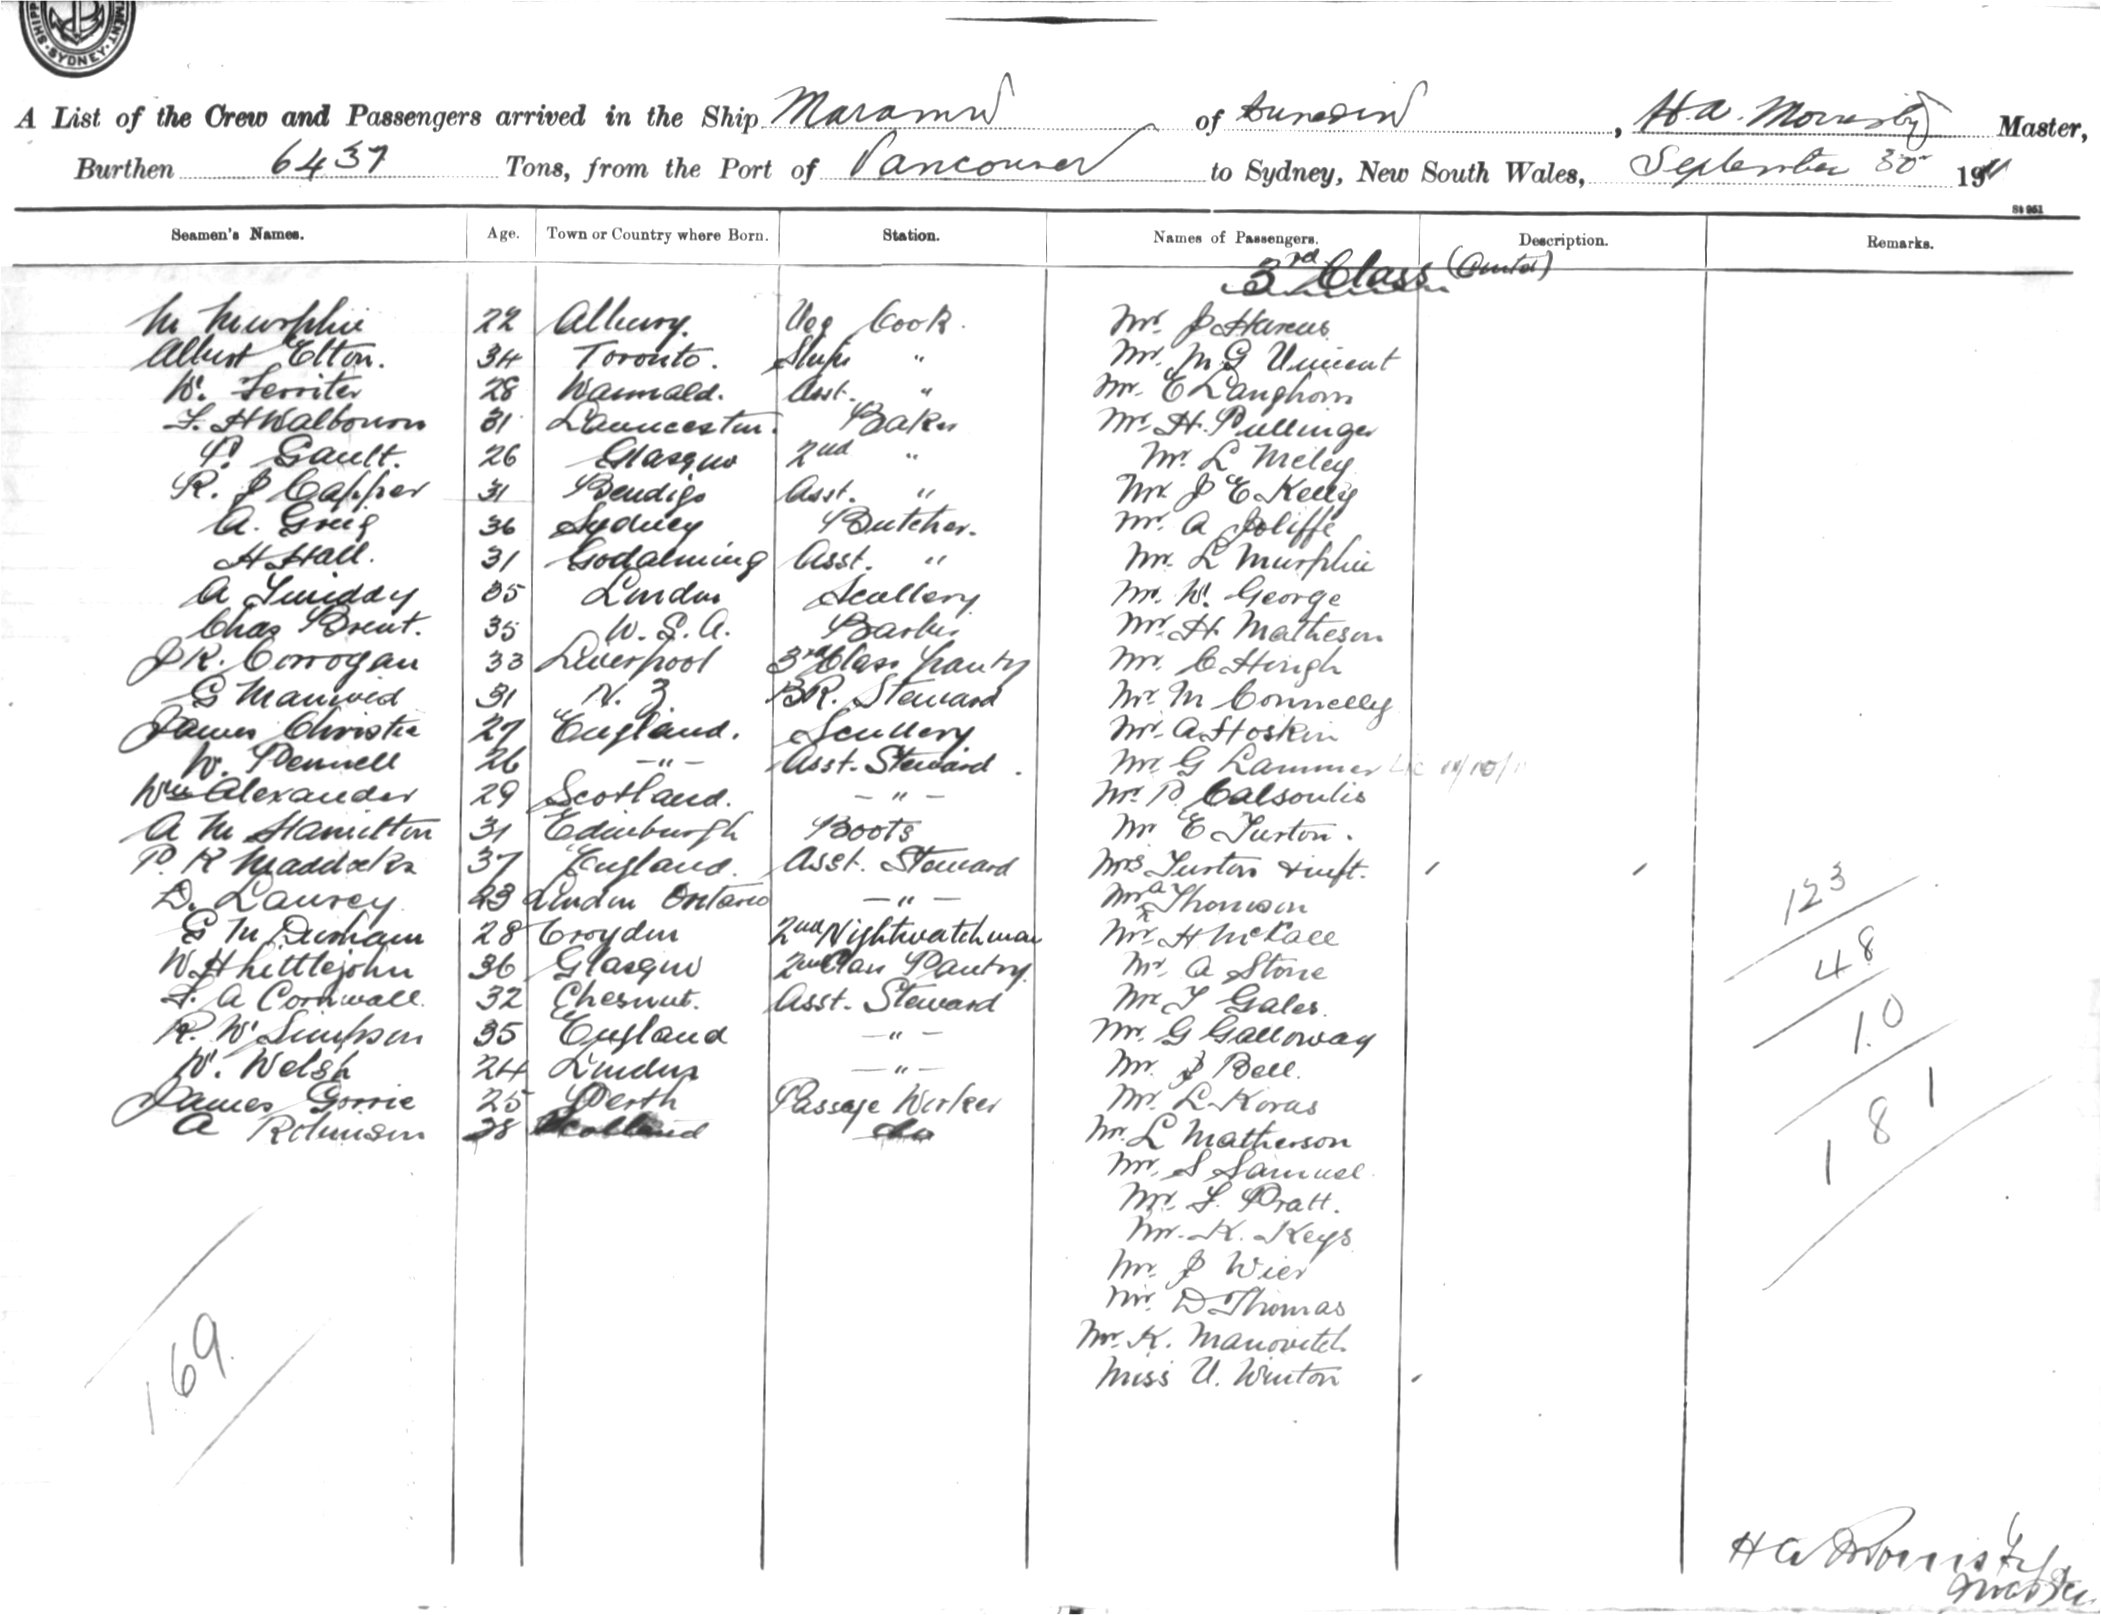 SYDNEY
A List of the Crew and Passengers arrived in the Ship Marama of Dunedin, H. A. Morrisby Master,
Burthen 6437 Tons, from the Port of Vancouver to Sydney, New South Wales, September 30 1911
St 951
Seamen's Names. Age. Town or Country where Born. Station. Names of Passengers. Description. Remarks.
3rd Class (Contd)
M Murphie 22 Albury. Veg Cook. Mr. J Harcus
Albert Elton. 34 Toronto. Ships " Mr. M G Vincent
W. Territer 28 Asst. " Mr. E Langhorn
31 Launceston. Baker Mr. H. Pullinger
P. Gault. 26 Glasgow 2nd " Mr. L Meley
R. J Capper 31 Bendigo Asst. " Mr J E Kelly
A. Greig 36 Sydney Butcher. Mr. A Joliffe
H Hall. 31 Godalming Asst. " Mr. L Murphie
A 35 London Scullery Mr. W. George
Chas Brent. 35 U. S. A. Barber Mr H. Matheson
J R. Corrogan 33 Liverpool 3rd Class Pantry Mr. C Hingh
G 31 N. Z B.R. Steward Mr M Connelly
James Christie 27 England. Scullery Mr. A Hoskin
W. Pennell 26 -"- Asst. Steward. Mr. G Lammer
Wm Alexander 29 Scotland. -"- Mr. P. Calsoulis
A M Hamilton 31 Edinburgh Boots Mr E Turton.
P. R Maddocks 37 England. Asst. Steward Mrs Turton & inft.
D. Laurey 23 London Ontario -"- Mr A Thomson
G M Durham 28 Croydon 2nd Nightwatchman Mr. H McCall
W H Littlejohn 36 Glasgow 2nd Class Pantry. Mr. A Stone
F. A Cornwall. 32 Chesnut. Asst. Steward Mr. T Gales.
R. W Simpson 35 England -"- Mr. G Galloway
W. Welsh 24 London -"- Mr. J Bell.
James Gorrie 25 Perth Passage Worker Mr. L Koras
A Robinson 28 Scotland do Mr. L Matherson
Mr. S Samuel
Mr. F. Pratt.
Mr. K. Keys
Mr. J Wier
Mr. D Thomas
Mr. K. Manovitch
Miss U. Winton
123
48
10
181
169.
H A Morrisby
Master